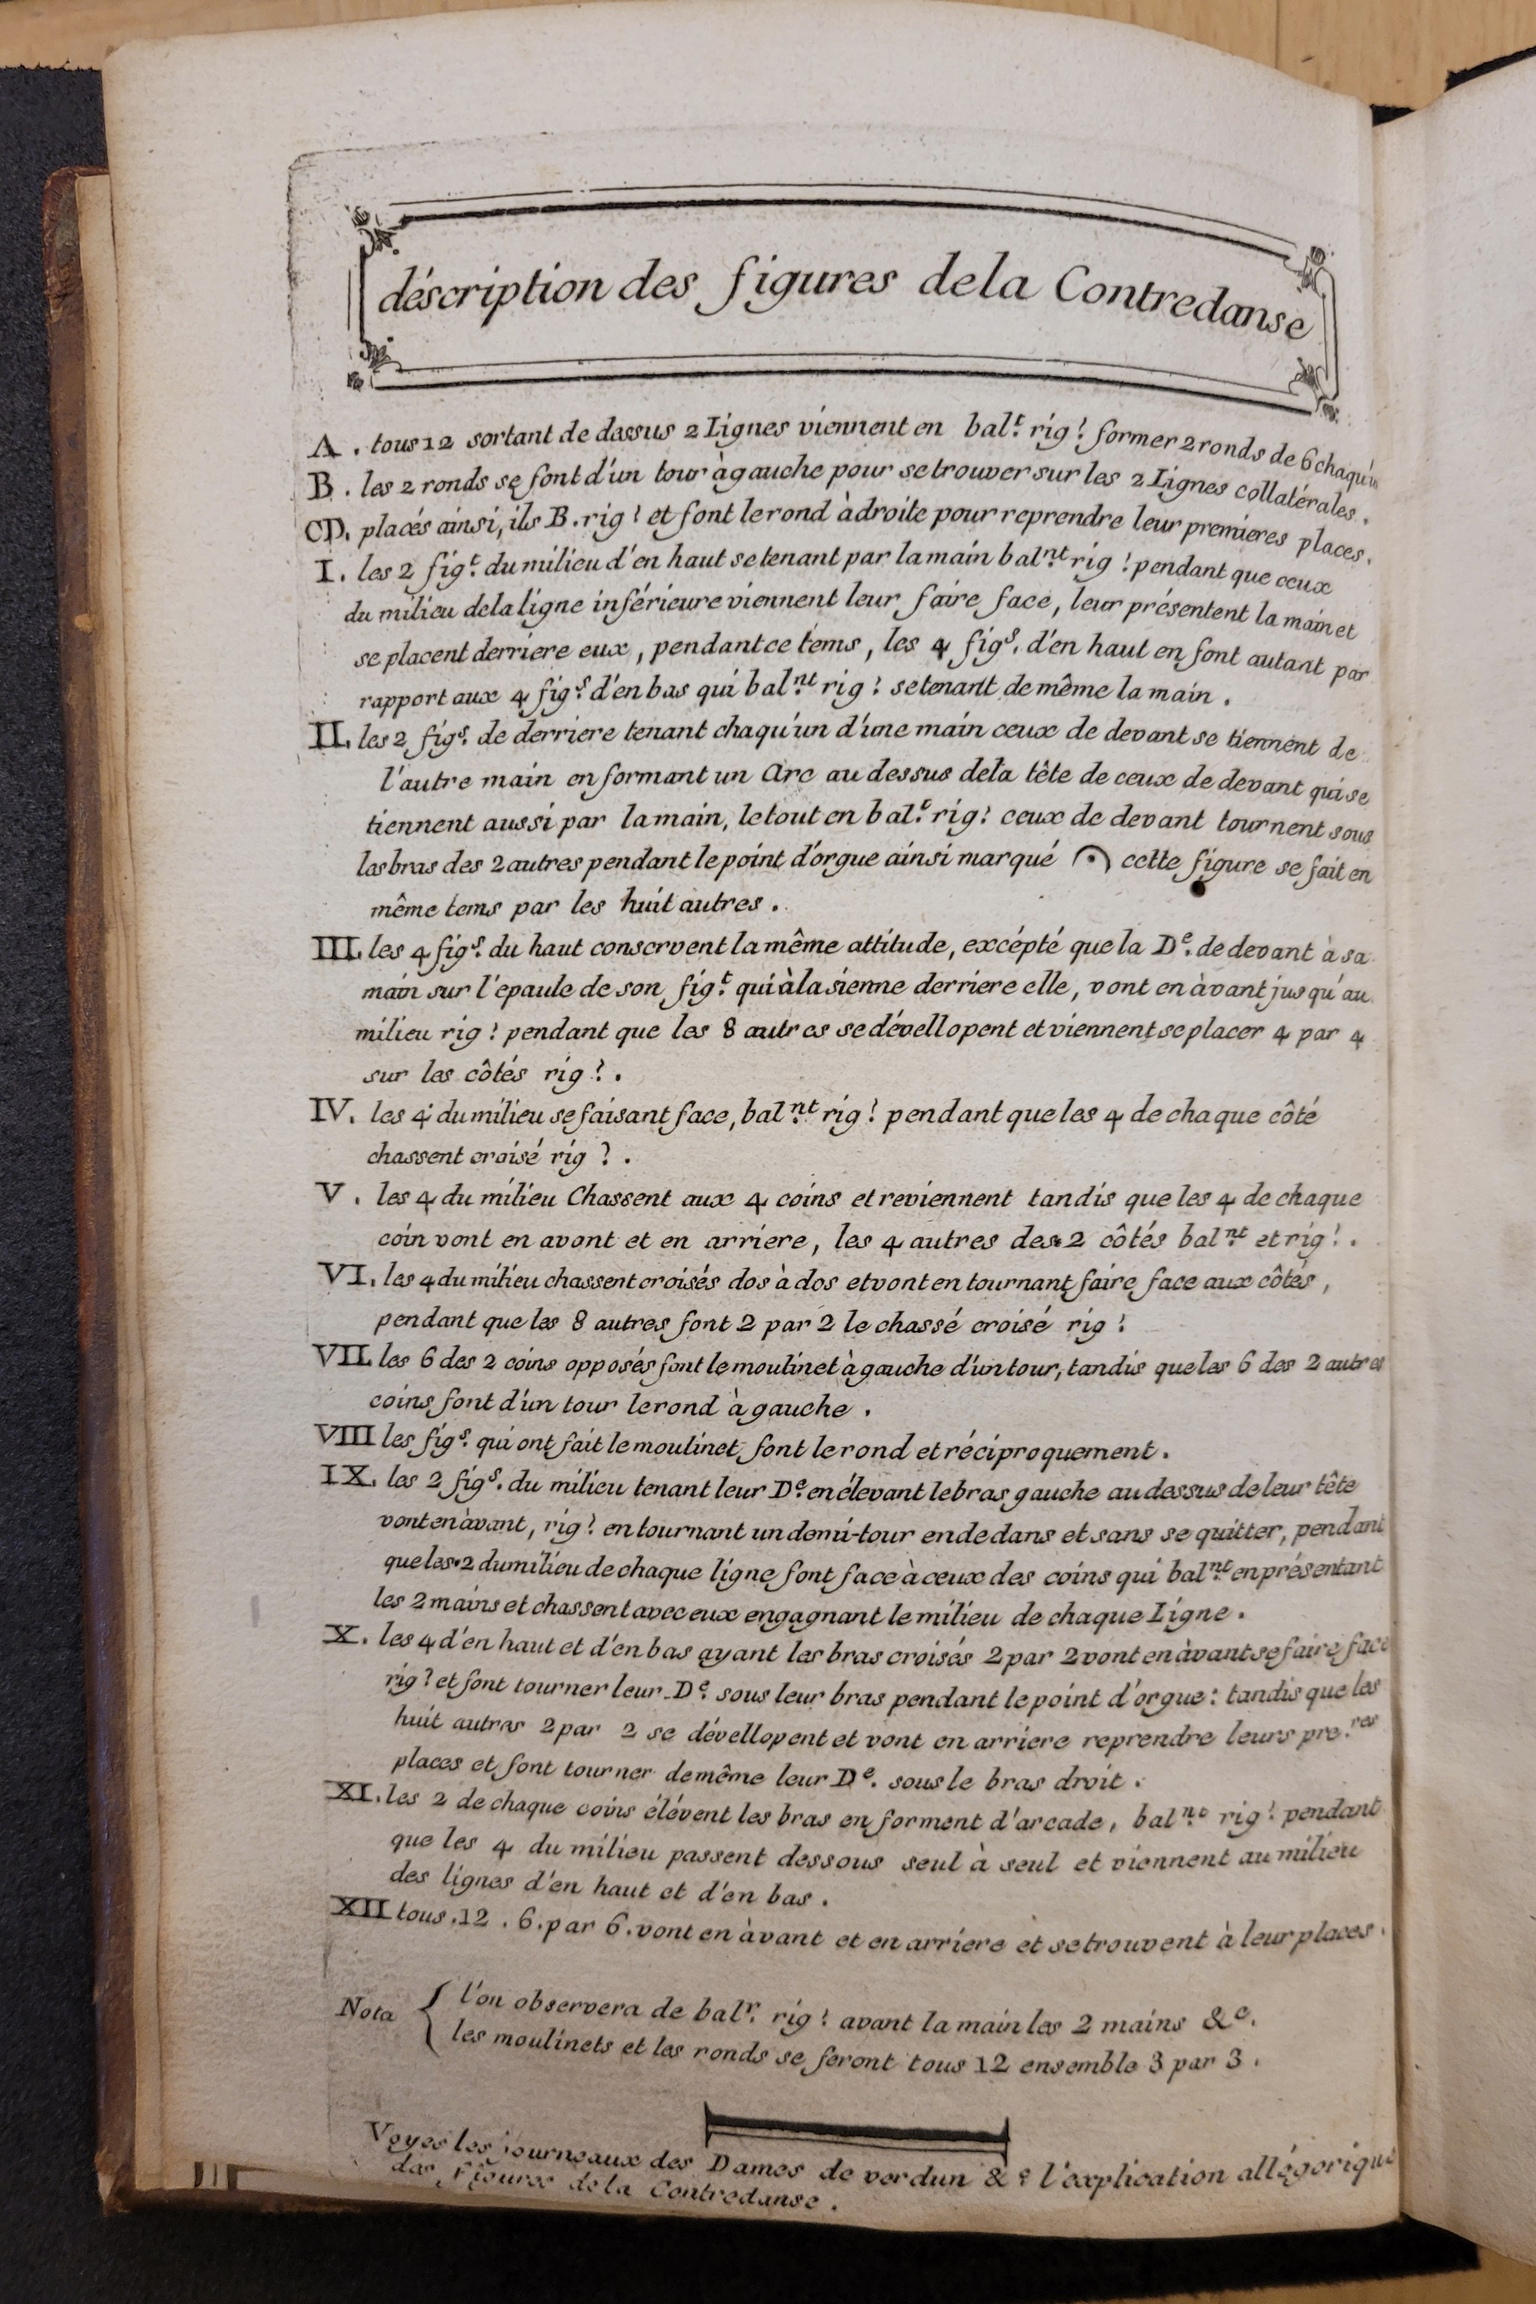 déscription des figures dela Contredanse
A. tous 12 sortant de dessus 2 Lignes viennent en bal.t rig! former 2 ronds de 6 chaqu'un
B. les 2 ronds se font d'un tour à gauche pour se trouver sur les 2 Lignes collatérales.
CD. placés ainsi, ils B. rig! et font le rond à droite pour reprendre leur premieres places.
I. les 2 fig.t du milieu d'en haut se tenant par la main bal.nt rig! pendant que ceux
du milieu de la ligne inférieure viennent leur faire face, leur présentent la main et
se placent derriere eux, pendant ce tems, les 4 fig.s d'en haut en font autant par
rapport aux 4 fig.s d'en bas qui bal.nt rig! se tenant de même la main.
II. les 2 fig.s de derriere tenant chaqu'un d'une main ceux de devant se tiennent de
l'autre main en formant un Arc au dessus de la tête de ceux de devant qui se
tiennent aussi par la main, le tout en bal.t rig! ceux de devant tournent sous
les bras des 2 autres pendant le point d'orgue ainsi marqué 𝄐 cette figure se fait en
même tems par les huit autres.
III. les 4 fig.s du haut conservent la même attitude, excépté que la D.e de devant à sa
main sur l'epaule de son fig.t qui à la sienne derriere elle, vont en àvant jusqu'au
milieu rig! pendant que les 8 autres se dévellopent et viennent se placer 4 par 4
sur les côtés rig!.
IV. les 4 du milieu se faisant face, bal.nt rig! pendant que les 4 de chaque côté
chassent croisé rig!.
V. les 4 du milieu Chassent aux 4 coins et reviennent tandis que les 4 de chaque
coin vont en avant et en arriere, les 4 autres des 2 côtés bal.nt et rig!.
VI. les 4 du milieu chassent croisés dos à dos et vont en tournant faire face aux côtés,
pendant que les 8 autres font 2 par 2 le chassé croisé rig!
VII. les 6 des 2 coins opposés font le moulinet à gauche d'un tour, tandis que les 6 des 2 autres
coins font d'un tour le rond à gauche.
VIII les fig.s qui ont fait le moulinet font le rond et réciproquement.
IX. les 2 fig.s du milieu tenant leur D.e en élevant le bras gauche au dessus de leur tête
vont en àvant, rig! en tournant un demi-tour en dedans et sans se quitter, pendant
que les 2 du milieu de chaque ligne font face à ceux des coins qui bal.nt en présentant
les 2 mains et chassent avec eux en gagnant le milieu de chaque Ligne.
X. les 4 d'en haut et d'en bas ayant les bras croisés 2 par 2 vont en àvant se faire face
rig! et font tourner leur D.e sous leur bras pendant le point d'orgue: tandis que les
huit autres 2 par 2 se dévellopent et vont en arriere reprendre leurs pre.res
places et font tourner de même leur D.e sous le bras droit.
XI. les 2 de chaque coins élévent les bras en forment d'arcade, bal.nt rig! pendant
que les 4 du milieu passent dessous seul à seul et viennent au milieu
des lignes d'en haut et d'en bas.
XII tous. 12. 6. par 6. vont en àvant et en arriere et se trouvent à leur places.
Nota { l'on observera de bal.r rig! avant la main les 2 mains &c.
les moulinets et les ronds se feront tous 12 ensemble 3 par 3.
Voyes les journeaux des Dames de verdun &c l'explication allégorique
des Figures de la Contredanse.